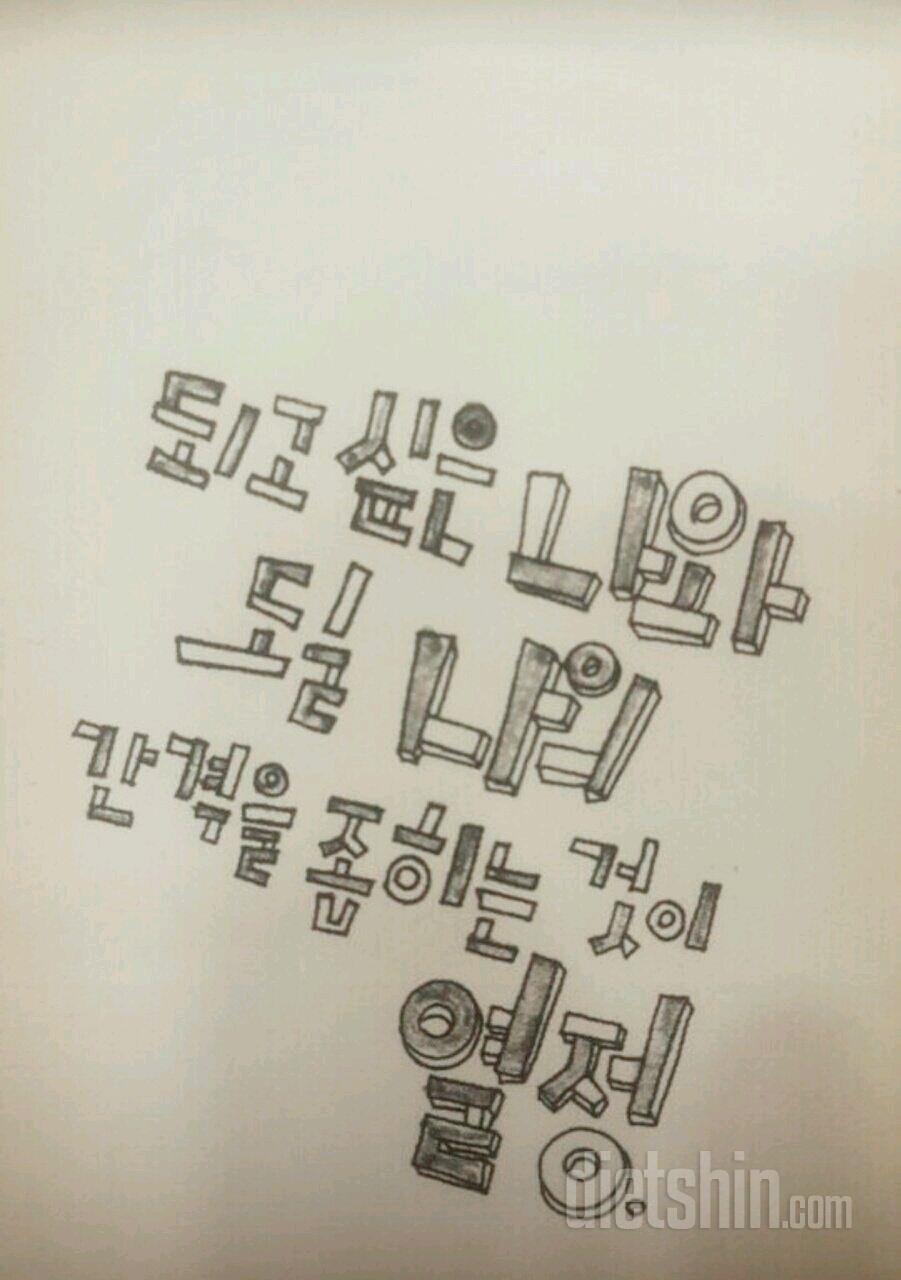 되고 싶은 나와
될 나의
간격을 좁히는 것이
열정.
dietshin.com